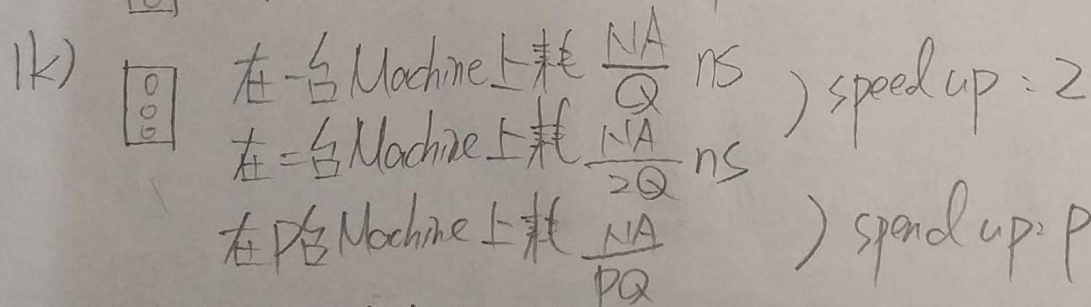 1k) 在一台Machine上耗 NA/Q ns ) speed up : 2
在二台Machine上耗 NA/2Q ns
在P台Machine上耗 NA/PQ ) spend up: P